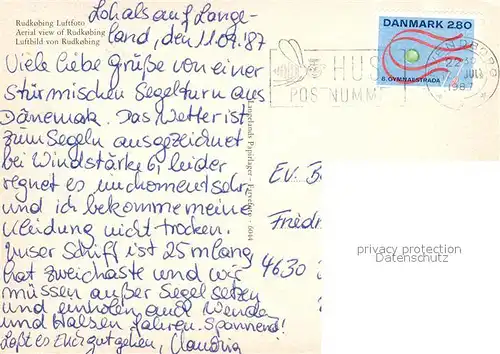 Rudkøbing Luftfoto
Aerial view of Rudkøbing
Luftbild von Rudkøbing
Lohals auf Lange-
land, den 11.07.87
Viele liebe Grüße von einer
stürmischen Segelturn aus
Dänemark. Das Wetter ist
zum Segeln ausgezeichnet
bei Windstärke 6, leider
regnet es momentan sehr
und ich bekomme meine
Kleidung nicht trocken.
Unser Schiff ist 25m lang
hat zwei Maste und wir
müssen außer Segel setzen
und einholen auch Wenden
und Halsen fahren. Spannend!
Laßt es Euch gut gehen, Claudia
Langelands Papirlager - Eneret
DANMARK 280
8. GYMNAESTRADA
HUSK
POSTNUMMER
SVENDBORG
JULI
1987
Friedr
4630
privacy protection
Datenschutz